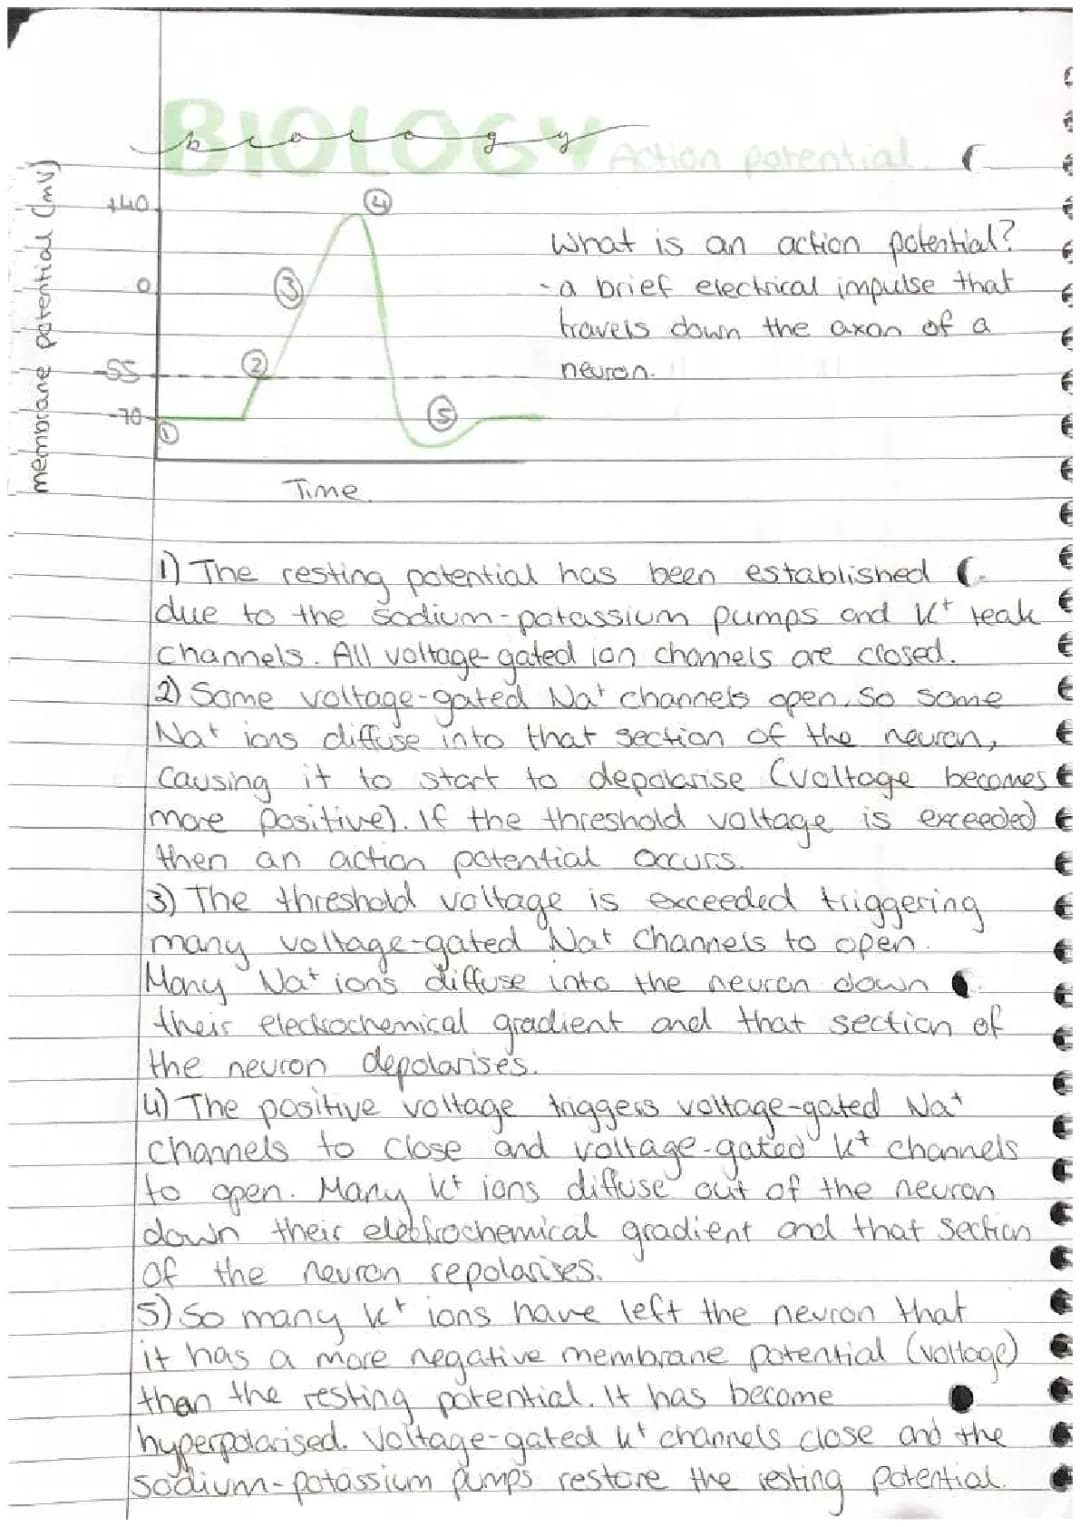 BIOLOGY
biology
Action potential.
membrane potential (mV)
+40
0
-55
-70
1
2
3
4
5
Time.
What is an action potential?
- a brief electrical impulse that
travels down the axon of a
neuron.
1) The resting potential has been established
due to the sodium-potassium pumps and K+ leak
channels. All voltage-gated ion channels are closed.
2) Some voltage-gated Na+ channels open, so some
Na+ ions diffuse into that section of the neuron,
causing it to start to depolarise (voltage becomes
more positive). If the threshold voltage is exceeded)
then an action potential occurs.
3) The threshold voltage is exceeded triggering
many voltage-gated Na+ channels to open.
Many Na+ ions diffuse into the neuron down
their electrochemical gradient and that section of
the neuron depolarises.
4) The positive voltage triggers voltage-gated Na+
channels to close and voltage-gated K+ channels
to open. Many K+ ions diffuse out of the neuron
down their electrochemical gradient and that section
of the neuron repolarises.
5) So many K+ ions have left the neuron that
it has a more negative membrane potential (voltage)
than the resting potential. It has become
hyperpolarised. Voltage-gated K+ channels close and the
sodium-potassium pumps restore the resting potential.